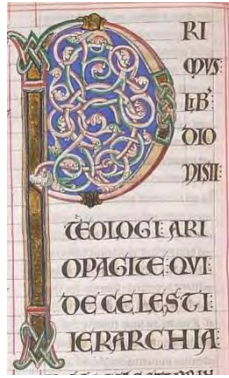 PRI
MVS
LIB'
DIO
NISII:
TEOLOGI ARI
OPAGITE QVI
DE CELESTI
IERARCHIA